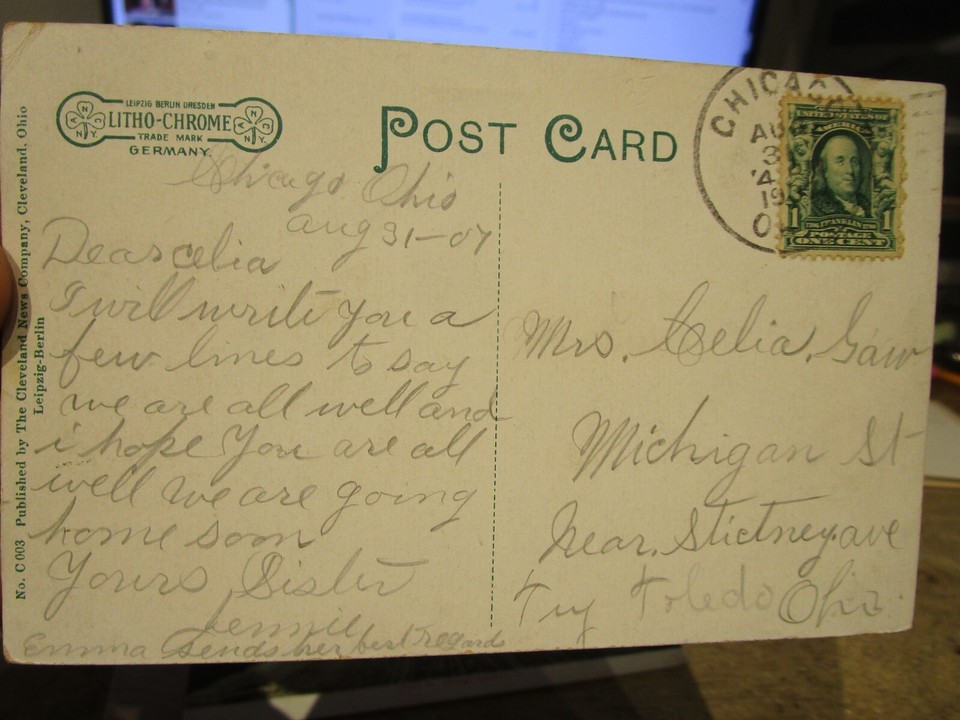 LEIPZIG BERLIN DRESDEN
LITHO-CHROME
TRADE MARK
GERMANY.
POST CARD
CHICAGO
AUG
3
19
UNITED STATES OF
AMERICA
1 1
FRANKLIN
POSTAGE
ONE CENT
No. C 003 Published by The Cleveland News Company, Cleveland, Ohio
Leipzig-Berlin
Chicago Ohio
Aug 31-07
Dear celia
I will write you a
few lines to say
we are all well and
i hope You are all
well we are going
home soon
Yours Sister
Jennie
Emma sends her best regards
Mrs. Celia. Gaw
Michigan St
Near. Stictney. ave
Try Toledo Ohio.